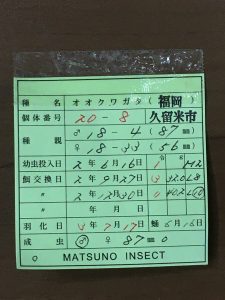 種名 オオクワガタ (福岡 久留米市)
個体番号 20-8
種親 ♂ 18-4 (87 ㎜)
♀ 18-33 (56 ㎜)
幼虫投入日 2年6月16日 1令
餌交換日 2年9月27日 3 32.0
〃 2年12月30日
〃 年 月 日
羽化日 3年7月17日 蛹 6月16日
成虫 ♂ ♀ 87㎜
MATSUNO INSECT